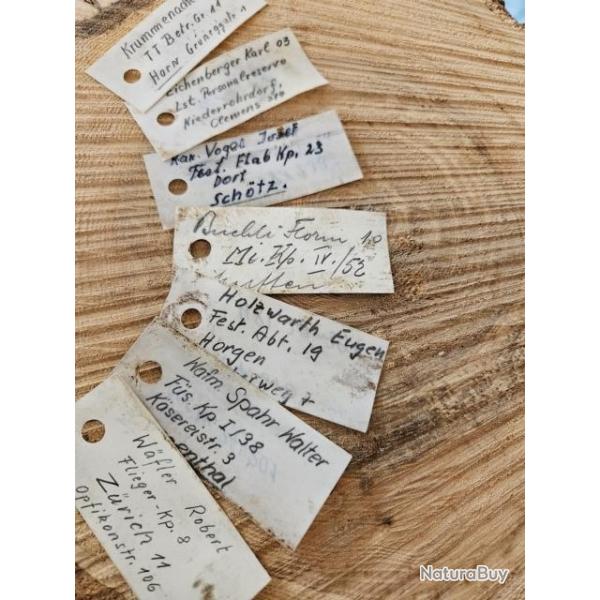 Krummenach
TT Betr. Gr. 11
Horn Grüneggstr. 1
Eichenberger Karl 03
Lst. Personalreserve
Niederrohrdorf
Clemens
Kan. Vogel Josef
Fest. Flab Kp. 23
Dorf
Schötz.
Buchli Florin 10
Mi. Kp. IV./52
Holzwarth Eugen
Fest. Abt. 19
Horgen
weg 7
Wafm. Spahr Walter
Füs. Kp I/38
Käsereistr. 3
enthal
Wäfler Robert
Flieger-Kp. 8
Zürich 11
Optikonstr. 106
NaturaBuy